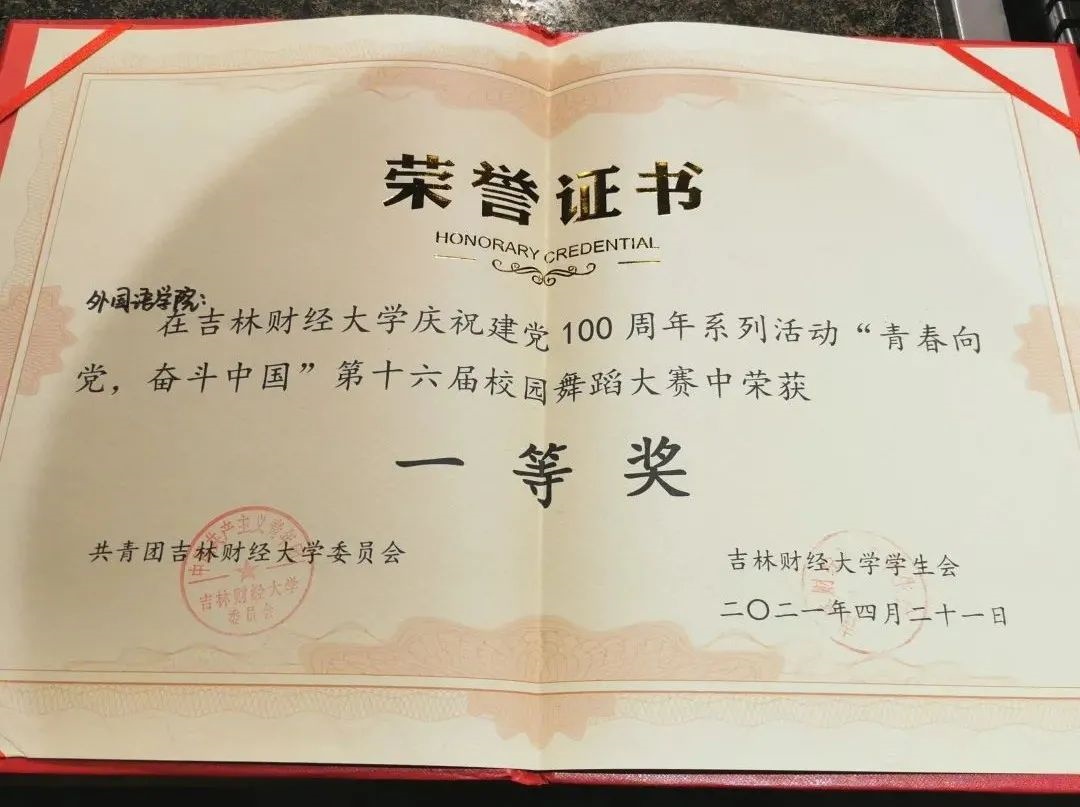 荣誉证书
HONORARY CREDENTIAL
外国语学院：
在吉林财经大学庆祝建党100周年系列活动“青春向
党，奋斗中国”第十六届校园舞蹈大赛中荣获
一等奖
共青团吉林财经大学委员会
吉林财经大学
委员会
吉林财经大学学生会
二〇二一年四月二十一日